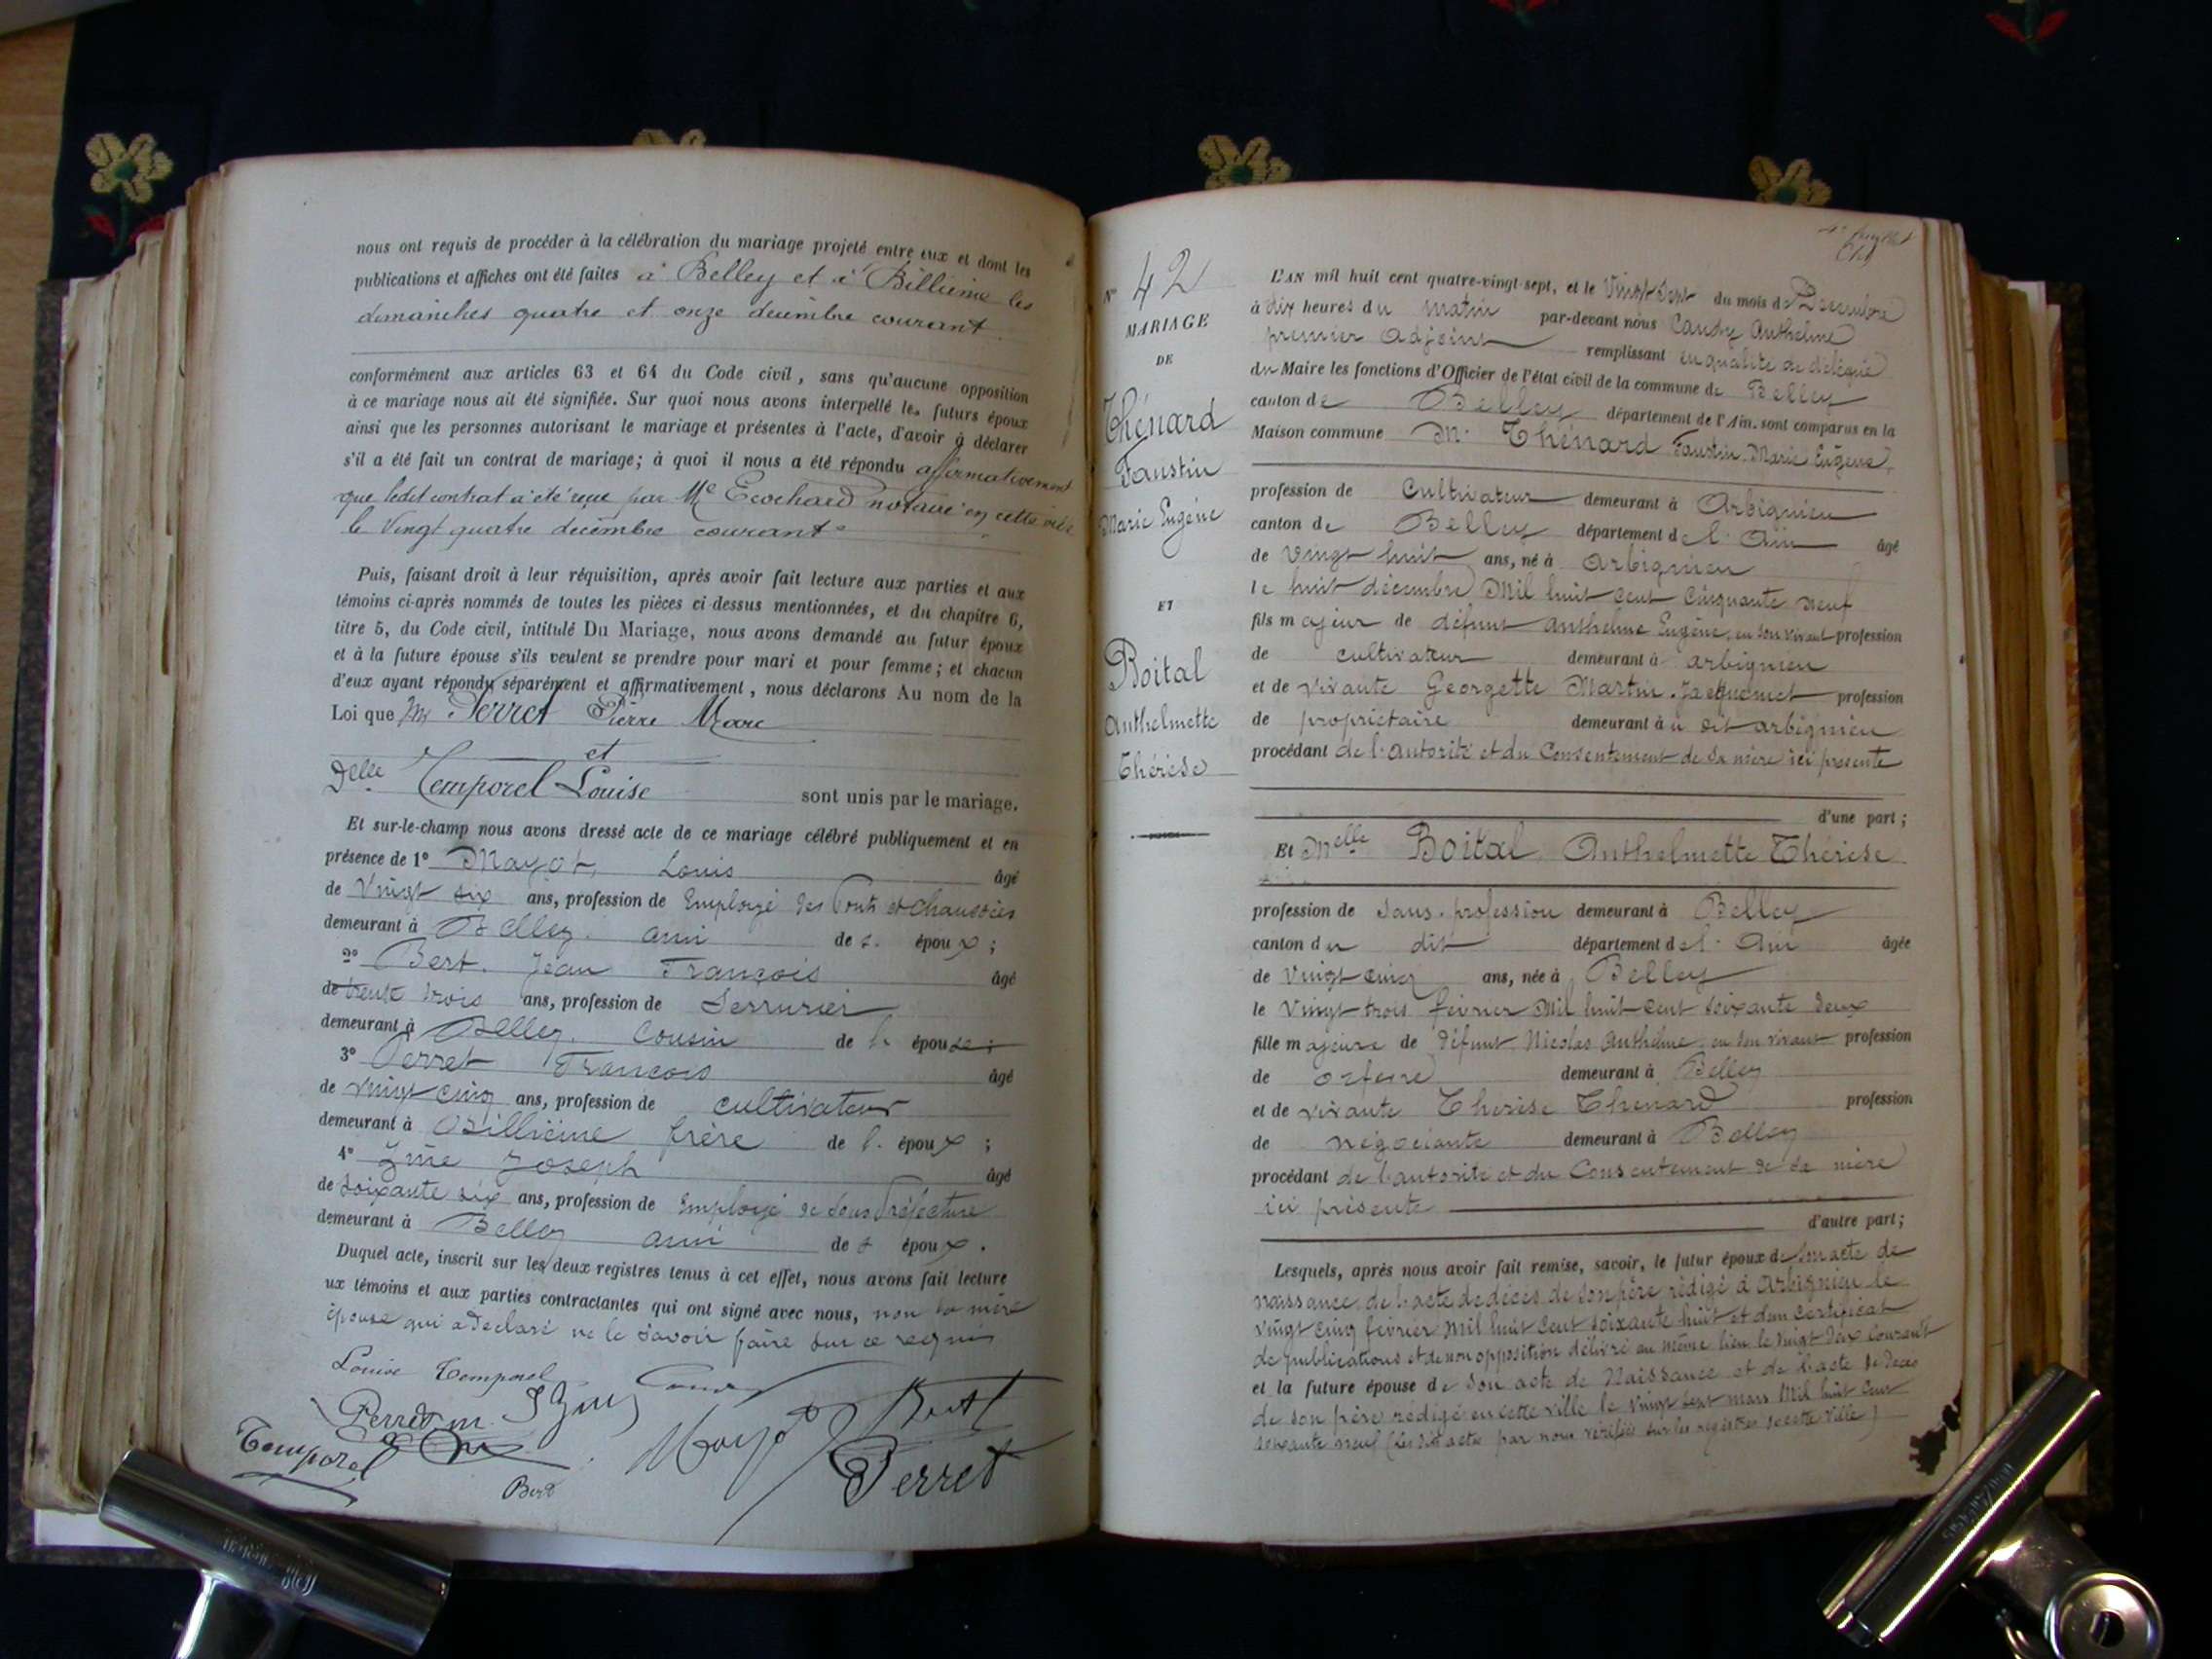 nous ont requis de procéder à la célébration du mariage projeté entre eux et dont les
publications et affiches ont été faites à Belley et à Billième les
dimanches quatre et onze décembre courant
conformément aux articles 63 et 64 du Code civil, sans qu'aucune opposition
à ce mariage nous ait été signifiée. Sur quoi nous avons interpellé les futurs époux
ainsi que les personnes autorisant le mariage et présentes à l'acte, d'avoir à déclarer
s'il a été fait un contrat de mariage; à quoi il nous a été répondu affirmativement
que ledit contrat a été reçu par Me Ecochard notaire en cette ville
le Vingt quatre décembre courant
Puis, faisant droit à leur réquisition, après avoir fait lecture aux parties et aux
témoins ci-après nommés de toutes les pièces ci-dessus mentionnées, et du chapitre 6,
titre 5, du Code civil, intitulé Du Mariage, nous avons demandé au futur époux
et à la future épouse s'ils veulent se prendre pour mari et pour femme; et chacun
d'eux ayant répondu séparément et affirmativement, nous déclarons Au nom de la
Loi que Mr Perret Pierre Marc
et
Delle Temporel Louise sont unis par le mariage.
Et sur-le-champ nous avons dressé acte de ce mariage célébré publiquement et en
présence de 1° Mayot, Louis âgé
de Vingt six ans, profession de Employé des Ponts et chaussées
demeurant à Belley. ami de l' époux;
2° Bert. Jean François âgé
de trente trois ans, profession de Serrurier
demeurant à Belley. Cousin de l' épouse;
3° Perret François âgé
de vingt cinq ans, profession de cultivateur
demeurant à Billième frère de l' époux;
4° Joseph âgé
de soixante six ans, profession de Employé de Sous Préfecture
demeurant à Belley ami de l' époux.
Duquel acte, inscrit sur les deux registres tenus à cet effet, nous avons fait lecture
ux témoins et aux parties contractantes qui ont signé avec nous, non la mère
épouse qui a déclaré ne le savoir faire sur ce requis
Louise Temporel
Perret m.
Temporel
Bert
Mayot
Perret
N° 42
MARIAGE
DE
Thénard
Faustin
Marie Eugène
ET
Boital
Anthelmette
Thérèse
L'AN mil huit cent quatre-vingt-sept, et le Vingt Sept du mois de Décembre
à dix heures du matin par-devant nous Anthelme
premier Adjoint remplissant en qualité de délégué
du Maire les fonctions d'Officier de l'état civil de la commune de Belley
canton de Belley département de l'Ain. sont comparus en la
Maison commune Mr Thénard Faustin Marie Eugène,
profession de Cultivateur demeurant à Arbignieu
canton de Belley département de l'Ain âgé
de Vingt huit ans, né à Arbignieu
le huit décembre Mil huit cent Cinquante neuf
fils majeur de défunt Anthelme Eugène, en son vivant profession
de cultivateur demeurant à Arbignieu
et de vivante Georgette Martin-Jacquemet profession
de propriétaire demeurant à u dit arbignieu
procédant de l'autorité et du Consentement de sa mère ici présente
d'une part;
Et Melle Boital Anthelmette Thérèse
profession de Sans profession demeurant à Belley
canton du dit département de l'Ain âgée
de Vingt cinq ans, née à Belley
le Vingt trois février Mil huit cent soixante deux
fille majeure de défunt Nicolas Anthelme en son vivant profession
de orfèvre demeurant à Belley
et de vivante Thérèse Thénard profession
de négociante demeurant à Belley
procédant de l'autorité et du Consentement de sa mère
ici présente
d'autre part;
Lesquels, après nous avoir fait remise, savoir, le futur époux de Son acte de
naissance, de l'acte de décès de son père rédigé à Arbignieu le
vingt cinq février Mil huit cent soixante huit et d'un Certificat
de publications et de non opposition délivré au même lieu le vingt deux Courant
et la future épouse de son acte de Naissance et de l'acte de décès
de son père rédigé en cette ville le Vingt sept mars Mil huit cent
soixante neuf (les dits actes par nous vérifiés sur les registres de cette Ville)